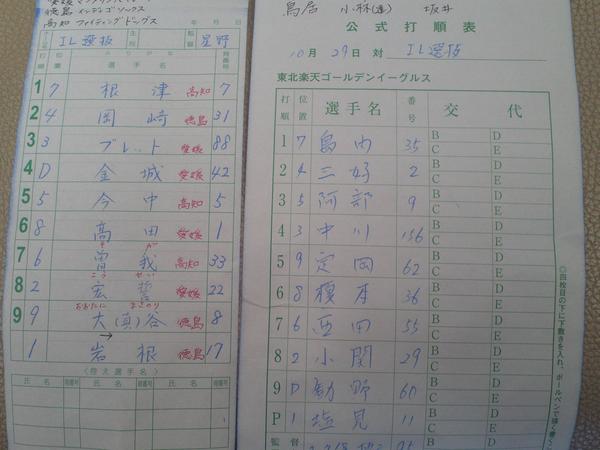 愛媛マンダリンパイレーツ
徳島インディゴソックス
高知ファイティングドッグス
年 月 日
IL選抜 星野
打順 位置 ふりがな 選手名 背番号
1 7 根津 高知 7
2 4 岡崎 徳島 31
3 3 ブレット 愛媛 88
4 D 金城 愛媛 42
5 5 今中 高知 5
6 8 高田 愛媛 1
そが
7 6 曽我 高知 33
こうせい
8 2 宏誓 愛媛 22
おおたに まさのり
9 9 大(真)谷 徳島 8
→
1 岩根 徳島 17
〈控え選手名〉
氏名 背番号 氏名 背番号 氏名 背番号
鳥居 小林(達) 坂井
公式打順表
10月29日対 IL選抜
東北楽天ゴールデンイーグルス
打順 位置 選手名 番号 交代
1 7 島内 35 B D C E
2 4 三好 2 B D C E
3 5 阿部 9 B D C E
4 3 中川 136 B D C E
5 9 定岡 62 B D C E
6 8 榎本 36 B D C E
7 6 西田 55 B D C E
8 2 小関 29 B D C E
9 D 勧野 60 B D C E
P 1 塩見 11 B D C E
監督 B D
◎四枚目の下に下敷きを入れ、ボールペンで強く書く